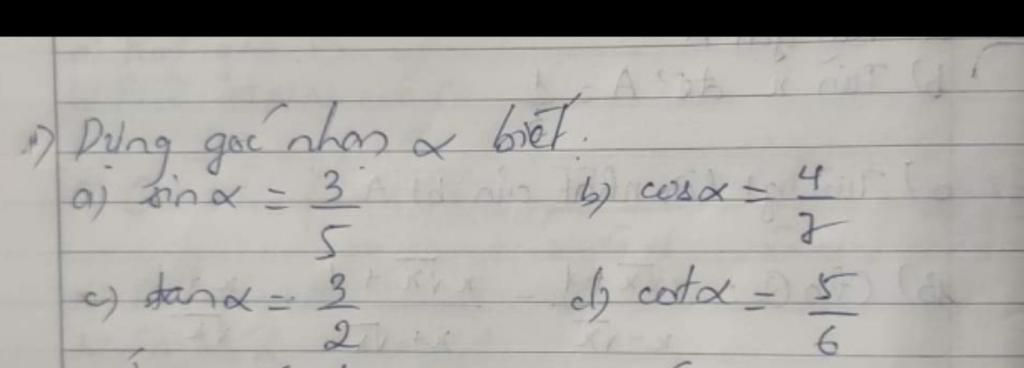 Dựng góc nhọn α biết.
a) sinα = 3/5 b) cosα = 4/7
c) tanα = 3/2 d) cotα = 5/6